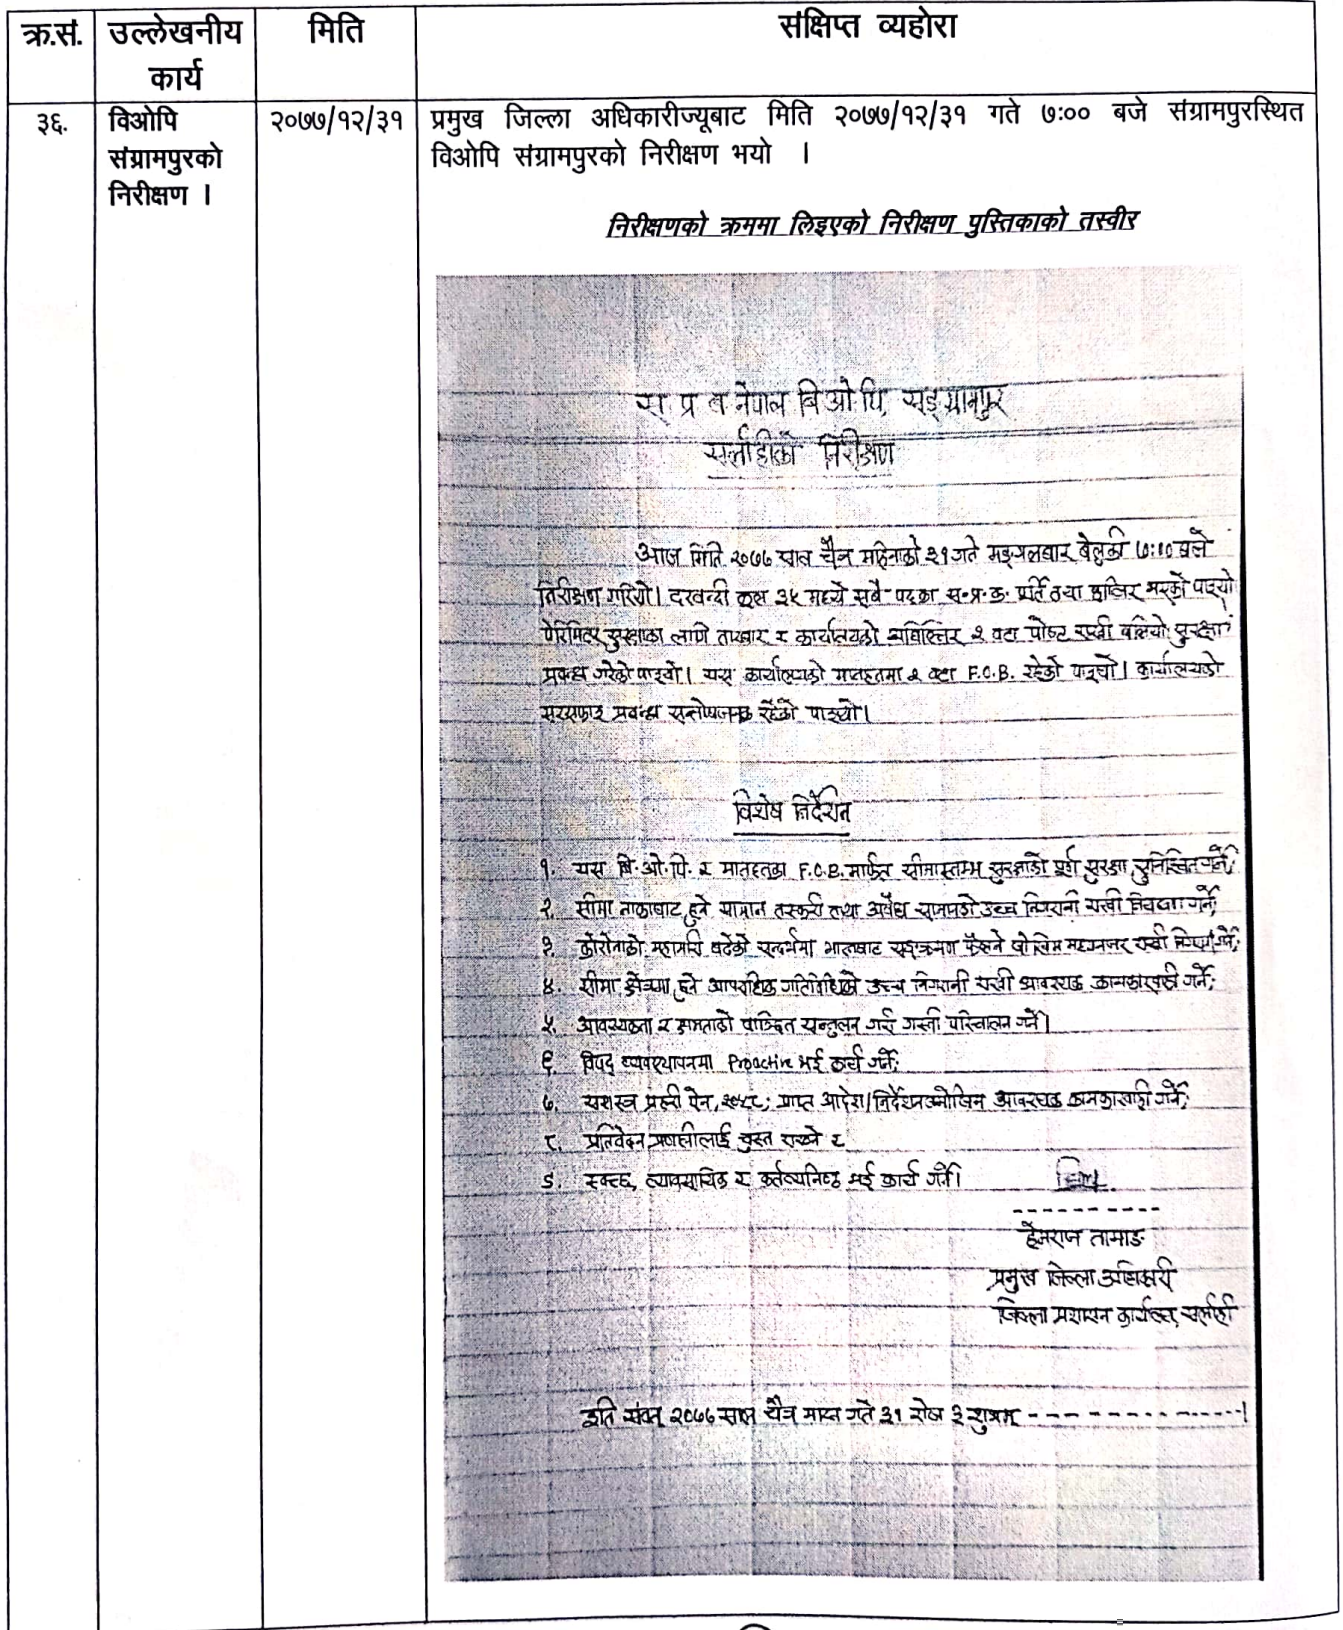 क्र.सं.
उल्लेखनीय
कार्य
मिति
संक्षिप्त व्यहोरा
३६.
विओपि
संग्रामपुरको
निरीक्षण ।
२०७७/१२/३१
प्रमुख जिल्ला अधिकारीज्यूबाट मिति २०७७/१२/३१ गते ७:०० बजे संग्रामपुरस्थित
विओपि संग्रामपुरको निरीक्षण भयो ।
निरीक्षणको क्रममा लिइएको निरीक्षण पुस्तिकाको तस्वीर
स. प्र. ब. नेपाल बि.ओ.पि. सङ्ग्रामपुर
सर्लाहीको निरीक्षण
आज मिति २०७७ साल चैत्र महिनाको ३१ गते मङ्गलबार बेलुकी ७:१० बजे
निरीक्षण गरियो। दरबन्दी कुल ३५ मध्ये सबै पदका स.प्र.क. पूर्ति तथा हाजिर भएको पाइयो
पेरिमिटर सुरक्षाका लागि तारबार र कार्यालयको २ वटा पोष्ट राखी बलियो सुरक्षा
प्रबन्ध गरेको पाइयो। यस कार्यालयको मातहतमा २ वटा F.O.B. रहेको पाइयो। कार्यालयको
सरसफाइ प्रबन्ध सन्तोषजनक रहेको पाइयो।
विशेष निर्देशन
१. यस बि.ओ.पि. र मातहतका F.O.B. मार्फत सीमास्तम्भ सुरक्षाको पूर्ण सुरक्षा सुनिश्चित गर्ने;
२. सीमा नाकाबाट हुने सामान तस्करी तथा अवैध उच्च निगरानी राखी नियन्त्रण गर्ने;
३. कोरोनाको महामारी बढेको सन्दर्भमा भारतबाट सङ्क्रमण फैलने जोखिम मध्यनजर राखी गर्ने;
४. सीमा क्षेत्रमा हुने आपराधिक गतिविधिको उच्च निगरानी राखी आवश्यक कामकारवाही गर्ने;
५. आवश्यकता र क्षमताको वाञ्छित सन्तुलन गरी गस्ती परिचालन गर्ने।
६. विपद् व्यवस्थापनमा Proactive भई कार्य गर्ने;
७. सशस्त्र प्रहरी ऐन, २०५८; प्राप्त आदेश/निर्देशनबमोजिम आवश्यक कामकारवाही गर्ने;
८. प्रतिवेदन प्रणालीलाई चुस्त राख्ने र
९. स्वच्छ, व्यावसायिक र कर्तव्यनिष्ठ भई कार्य गर्ने।
हेमराज तामाङ
प्रमुख जिल्ला अधिकारी
जिल्ला प्रशासन कार्यालय, सर्लाही
इति संवत् २०७७ साल चैत्र मास गते ३१ रोज ३ शुभम् - - - - - - - - - - - - - - ।